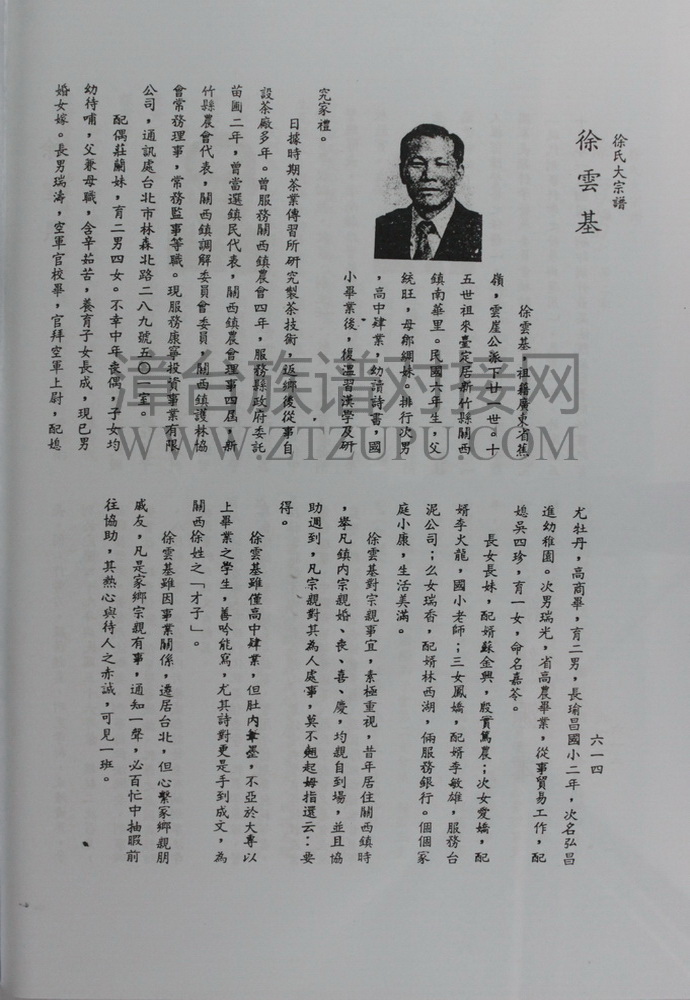 徐氏大宗譜
徐雲基
徐雲基，祖籍廣東省蕉
嶺，雲崖公派下廿一世。十
五世祖來臺定居新竹縣關西
鎮南華里。民國六年生，父
統旺，母鄒綢妹。排行次男
，高中肄業，幼讀詩書，國
小畢業後，復溫習漢學及研
究家禮。
日據時期茶業傳習所研究製茶技術，返鄉後從事自
設茶廠多年。曾服務關西鎮農會四年，服務縣政府委託
苗圃二年，曾當選鎮民代表，關西鎮農會理事四屆，新
竹縣農會代表，關西鎮調解委員會委員，關西鎮護林協
會常務理事，常務監事等職。現服務康寧投資事業有限
公司，通訊處台北市林森北路二八九號五〇一室。
配偶莊蘭妹，育二男四女。不幸中年喪偶，子女均
幼待哺，父兼母職，含辛茹苦，養育子女長成，現已男
婚女嫁。長男瑞濤，空軍官校畢，官拜空軍上尉，配媳
尤牡丹，高商畢，育二男，長瑜昌國小二年，次名弘昌
進幼稚園。次男瑞光，省高農畢業，從事貿易工作，配
媳吳四珍，育一女，命名嘉苓。
長女長妹，配婿蘇金興，殷實篤農；次女愛嬌，配
婿李火龍，國小老師；三女鳳嬌，配婿李敏雄，服務台
泥公司；么女瑞香，配婿林西湖，倆服務銀行。個個家
庭小康，生活美滿。
徐雲基對宗親事宜，素極重視，昔年居住關西鎮時
，舉凡鎮內宗親婚、喪、喜、慶，均親自到場，並且協
助週到，凡宗親對其為人處事，莫不翹起姆指還云：要
得。
徐雲基雖僅高中肄業，但肚內筆墨，不亞於大專以
上畢業之學生，善吟能寫，尤其詩對更是手到成文，為
關西徐姓之「才子」。
徐雲基雖因事業關係，遷居台北，但心繫家鄉親朋
戚友，凡是家鄉宗親有事，通知一聲，必百忙中抽暇前
往協助，其熱心與待人之赤誠，可見一班。
六一四
漳台族谱对接网
WWW.ZTZUPU.COM